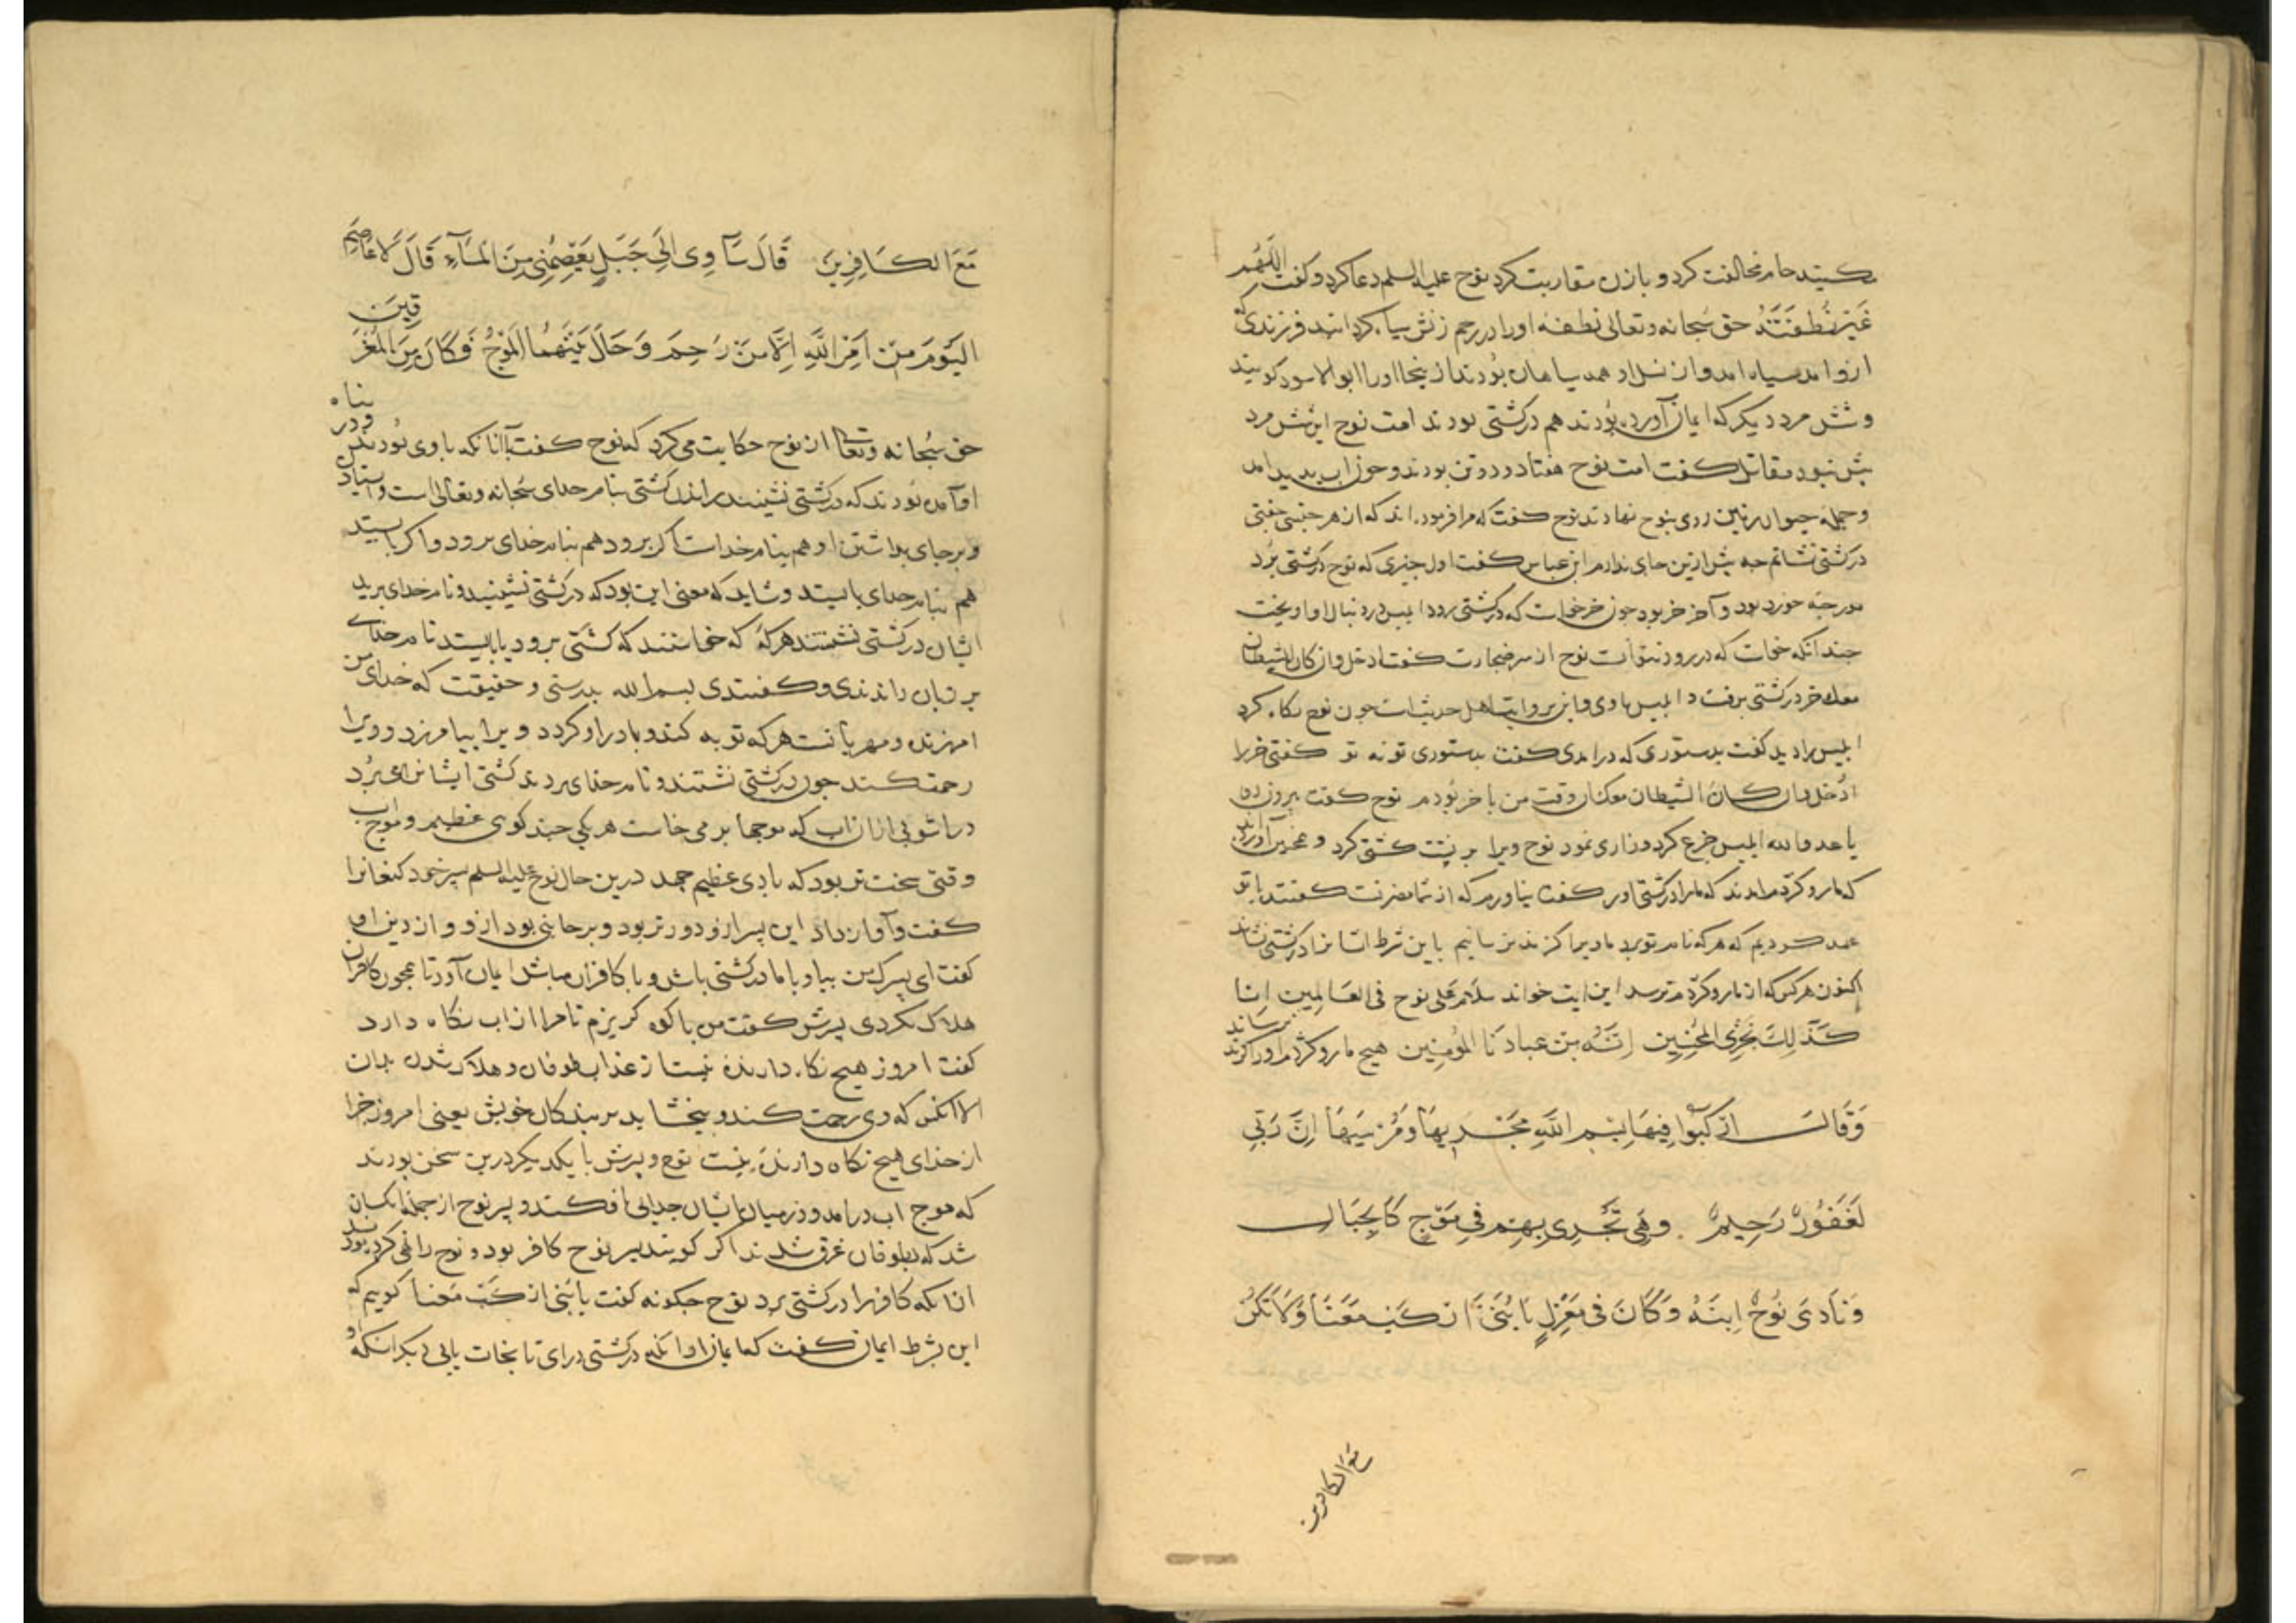 کنید حام مخالفت کرد و با زن مقاربت کرد نوح علیه السلم دعا کرد و کفت اللهم
غیر نطفته حق سبحانه وتعالی نطفه او را در رحم زنش سیاه کردانید فرزندی که
ازو امد سیاه امد و از نسل او همه سیاهان بودند از ینجا او را ابو الاسود کویند
و شش مرد دیکر که ایمان آورده بودند هم در کشتی بودند امت نوح این شش مرد
بیش نبود مقاتل کفت امت نوح هفتاد و دو تن بودند و چون اب بدید امد
و جمله حیوان زمین روی بنوح نهادند نوح کفت که مرا فرموده اند که از هر جنسی جفتی
در کشتی نشانم جه بیش ازین جای ندارم ابن عباس کفت اول چیزی که نوح در کشتی برد
مورچه خورد بود و آخر خر بود جون خر خواست که در کشتی رود ابلیس در دنبال او اویخت
جندانکه خواست که در رود نتوانست نوح از سر ضجارت کفت ادخل وان کان الشیطان
معک خر در کشتی برفت و ابلیس با وی و این بروایت اهل حدیث است جون نوح نکاه کرد
ابلیس را دید کفت بدستوری که درامدی کفت بدستوری تو نه تو کفتی خر را
ادخل وان کان الشیطان معک ان وقت من با خر بودم نوح کفت بیرون رو
یا عدو الله ابلیس جزع کرد و زاری نمود نوح ویرا بر پشت کشتی کرد و
که مار و کژدم امدند که ما را در کشتی اور کفت نیاورم که از شما مضرتست کفتند با تو
عهد کردیم که هر که نام تو برد ما ویرا کزند نرسانیم باین شرط ایشانرا در کشتی نشاند
اکنون هر کس که از مار و کژدم ترسد این ایت خواند سلام علی نوح فی العالمین انا
کذلک نجزی المحسنین انه من عبادنا المؤمنین هیچ مار و کژدم او را کزند نرساند
وَقَالَ ارْكَبُوا فِيهَا بِسْمِ اللَّهِ مَجْرِيهَا وَمُرْسَيهَا إِنَّ رَبِّي
لَغَفُورٌ رَحِيمٌ . وَهِيَ تَجْرِي بِهِمْ فِي مَوْجٍ كَالْجِبَالِ
وَنَادَى نُوحٌ ابْنَهُ وَكَانَ فِي مَعْزِلٍ يَا بُنَيَّ ارْكَبْ مَعَنَا وَلَا تَكُنْ
مع الکافرین
مَعَ الْكَافِرِينَ قَالَ سَآوِي إِلَى جَبَلٍ يَعْصِمُنِي مِنَ الْمَآءِ قَالَ لَا عَاصِمَ
الْيَوْمَ مِنْ أَمْرِ اللَّهِ إِلَّا مَنْ رَحِمَ وَحَالَ بَيْنَهُمَا الْمَوْجُ فَكَانَ مِنَ الْمُغْرَقِينَ
حق سبحانه وتعالی از نوح حکایت می کرد که نوح کفت آنانکه با وی بودند
او آمده بودند که در کشتی نشینند راندن کشتی بنام خدای سبحانه وتعالی است و
و بر جای بداشتن او هم بنام خداست اکر برود هم بنام خدای برود و اکر بایستد
هم بنام خدای بایستد و شاید که معنی این بود که در کشتی نشینید و نام خدای برید
ایشان در کشتی نشستند هر که که خواستند که کشتی برود یا بایستد نام خدای
بر زبان راندندی و کفتندی بسم الله بدرستی و حقیقت که خدای من
امرزنده و مهربانست هر که توبه کند و با در او کردد ویرا بیامرزد و ویرا
رحمت کند جون در کشتی نشستند و نام خدای بردند کشتی ایشانرا می برد
در اشوبی از ان اب که موجها بر می خاست هر یکی جند کوهی عظیم و موج اب
وقتی سخت تر بود که بادی عظیم جهد درین حال نوح علیه السلم پسر خود کنعانرا
کفت و آواز داد این پسر ازو دورتر بود و بر جانبی بود ازو و از دین او
کفت ای پسرک من بیا و با ما در کشتی باش و با کافران مباش ایمان آور تا همچون کافران
هلاک نکردی پسرش کفت من با کوه کریزم تا مرا از اب نکاه دارد
کفت امروز هیچ نکاه دارنده نیست از عذاب طوفان و هلاک شدن بدان
الا انکس که وی رحمت کند و ببخشاید بر بندکان خویش یعنی امروز جز
از خدای هیچ نکاه دارنده نیست نوح و پسرش با یکدیکر درین سخن بودند
که موج اب درامد و در میان ایشان جدایی افکند و پسر نوح از جمله کسان
شد که بطوفان غرق شدند اکر کویند پسر نوح کافر بود و نوح را نهی کرده بود
از انکه کافر را در کشتی برد نوح جکونه کفت یا بنی ارکب معنا کوییم که
این بشرط ایمان کفت که ایمان اور انکه در کشتی درای تا نجات یابی دیکر انکه او